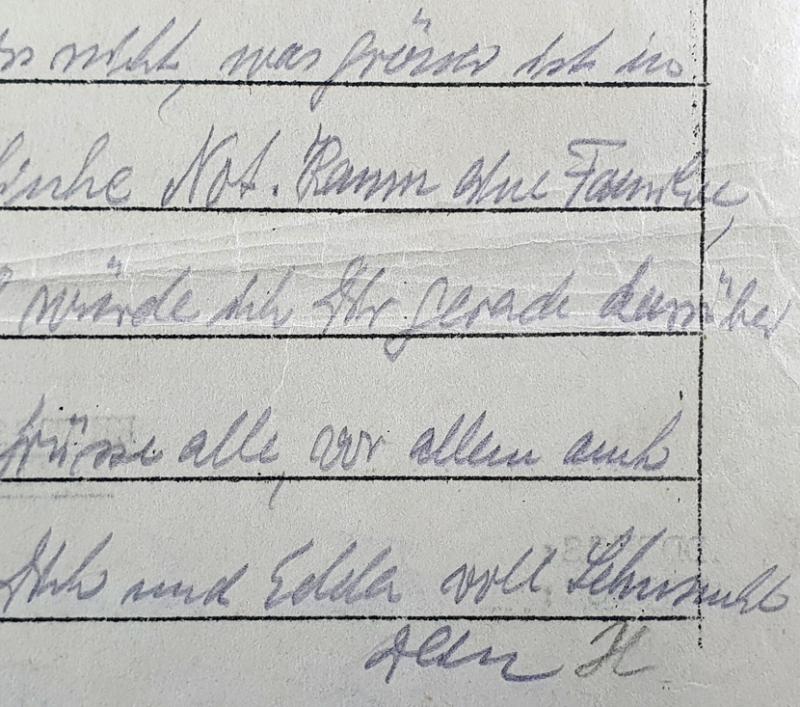 nicht, was grösser ist in
Not. Kaum ohne Familie,
würde ich Dir gerade darüber
Grüsse alle, vor allem auch
Dich und Edda voll Sehnsucht
Dein H